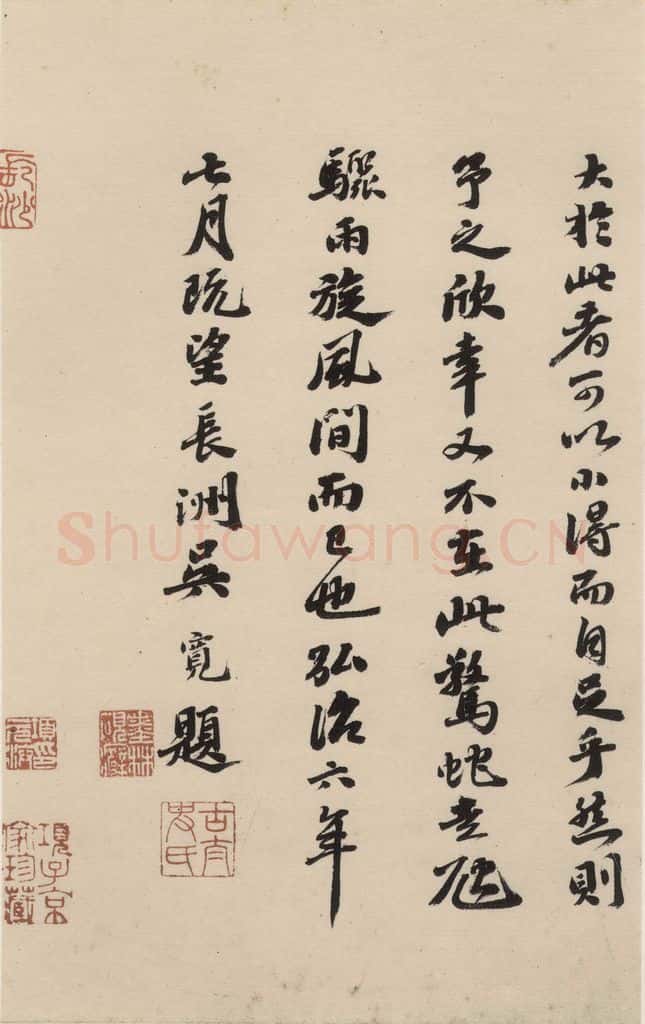 大於此者可以小得而自足乎然則
予之欣幸又不在此驚蛇走虺
驟雨旋風間而已也弘治六年
七月既望長洲吳寬題
古太史氏
項子京家珍藏
Shufawang.CN